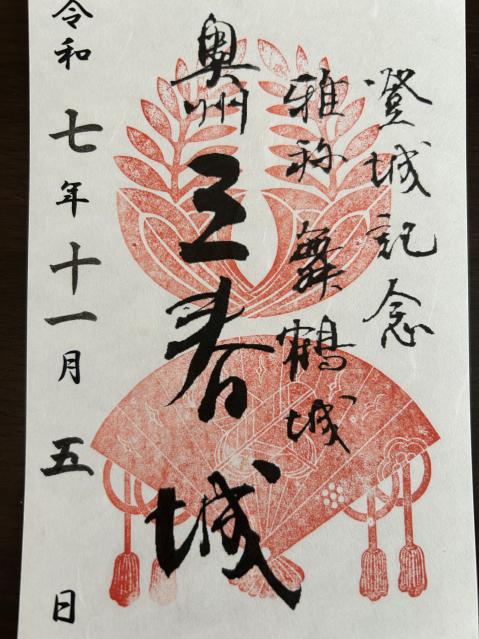 登城記念
雅称 舞鶴城
奥州 三春城
令和七年十一月五日